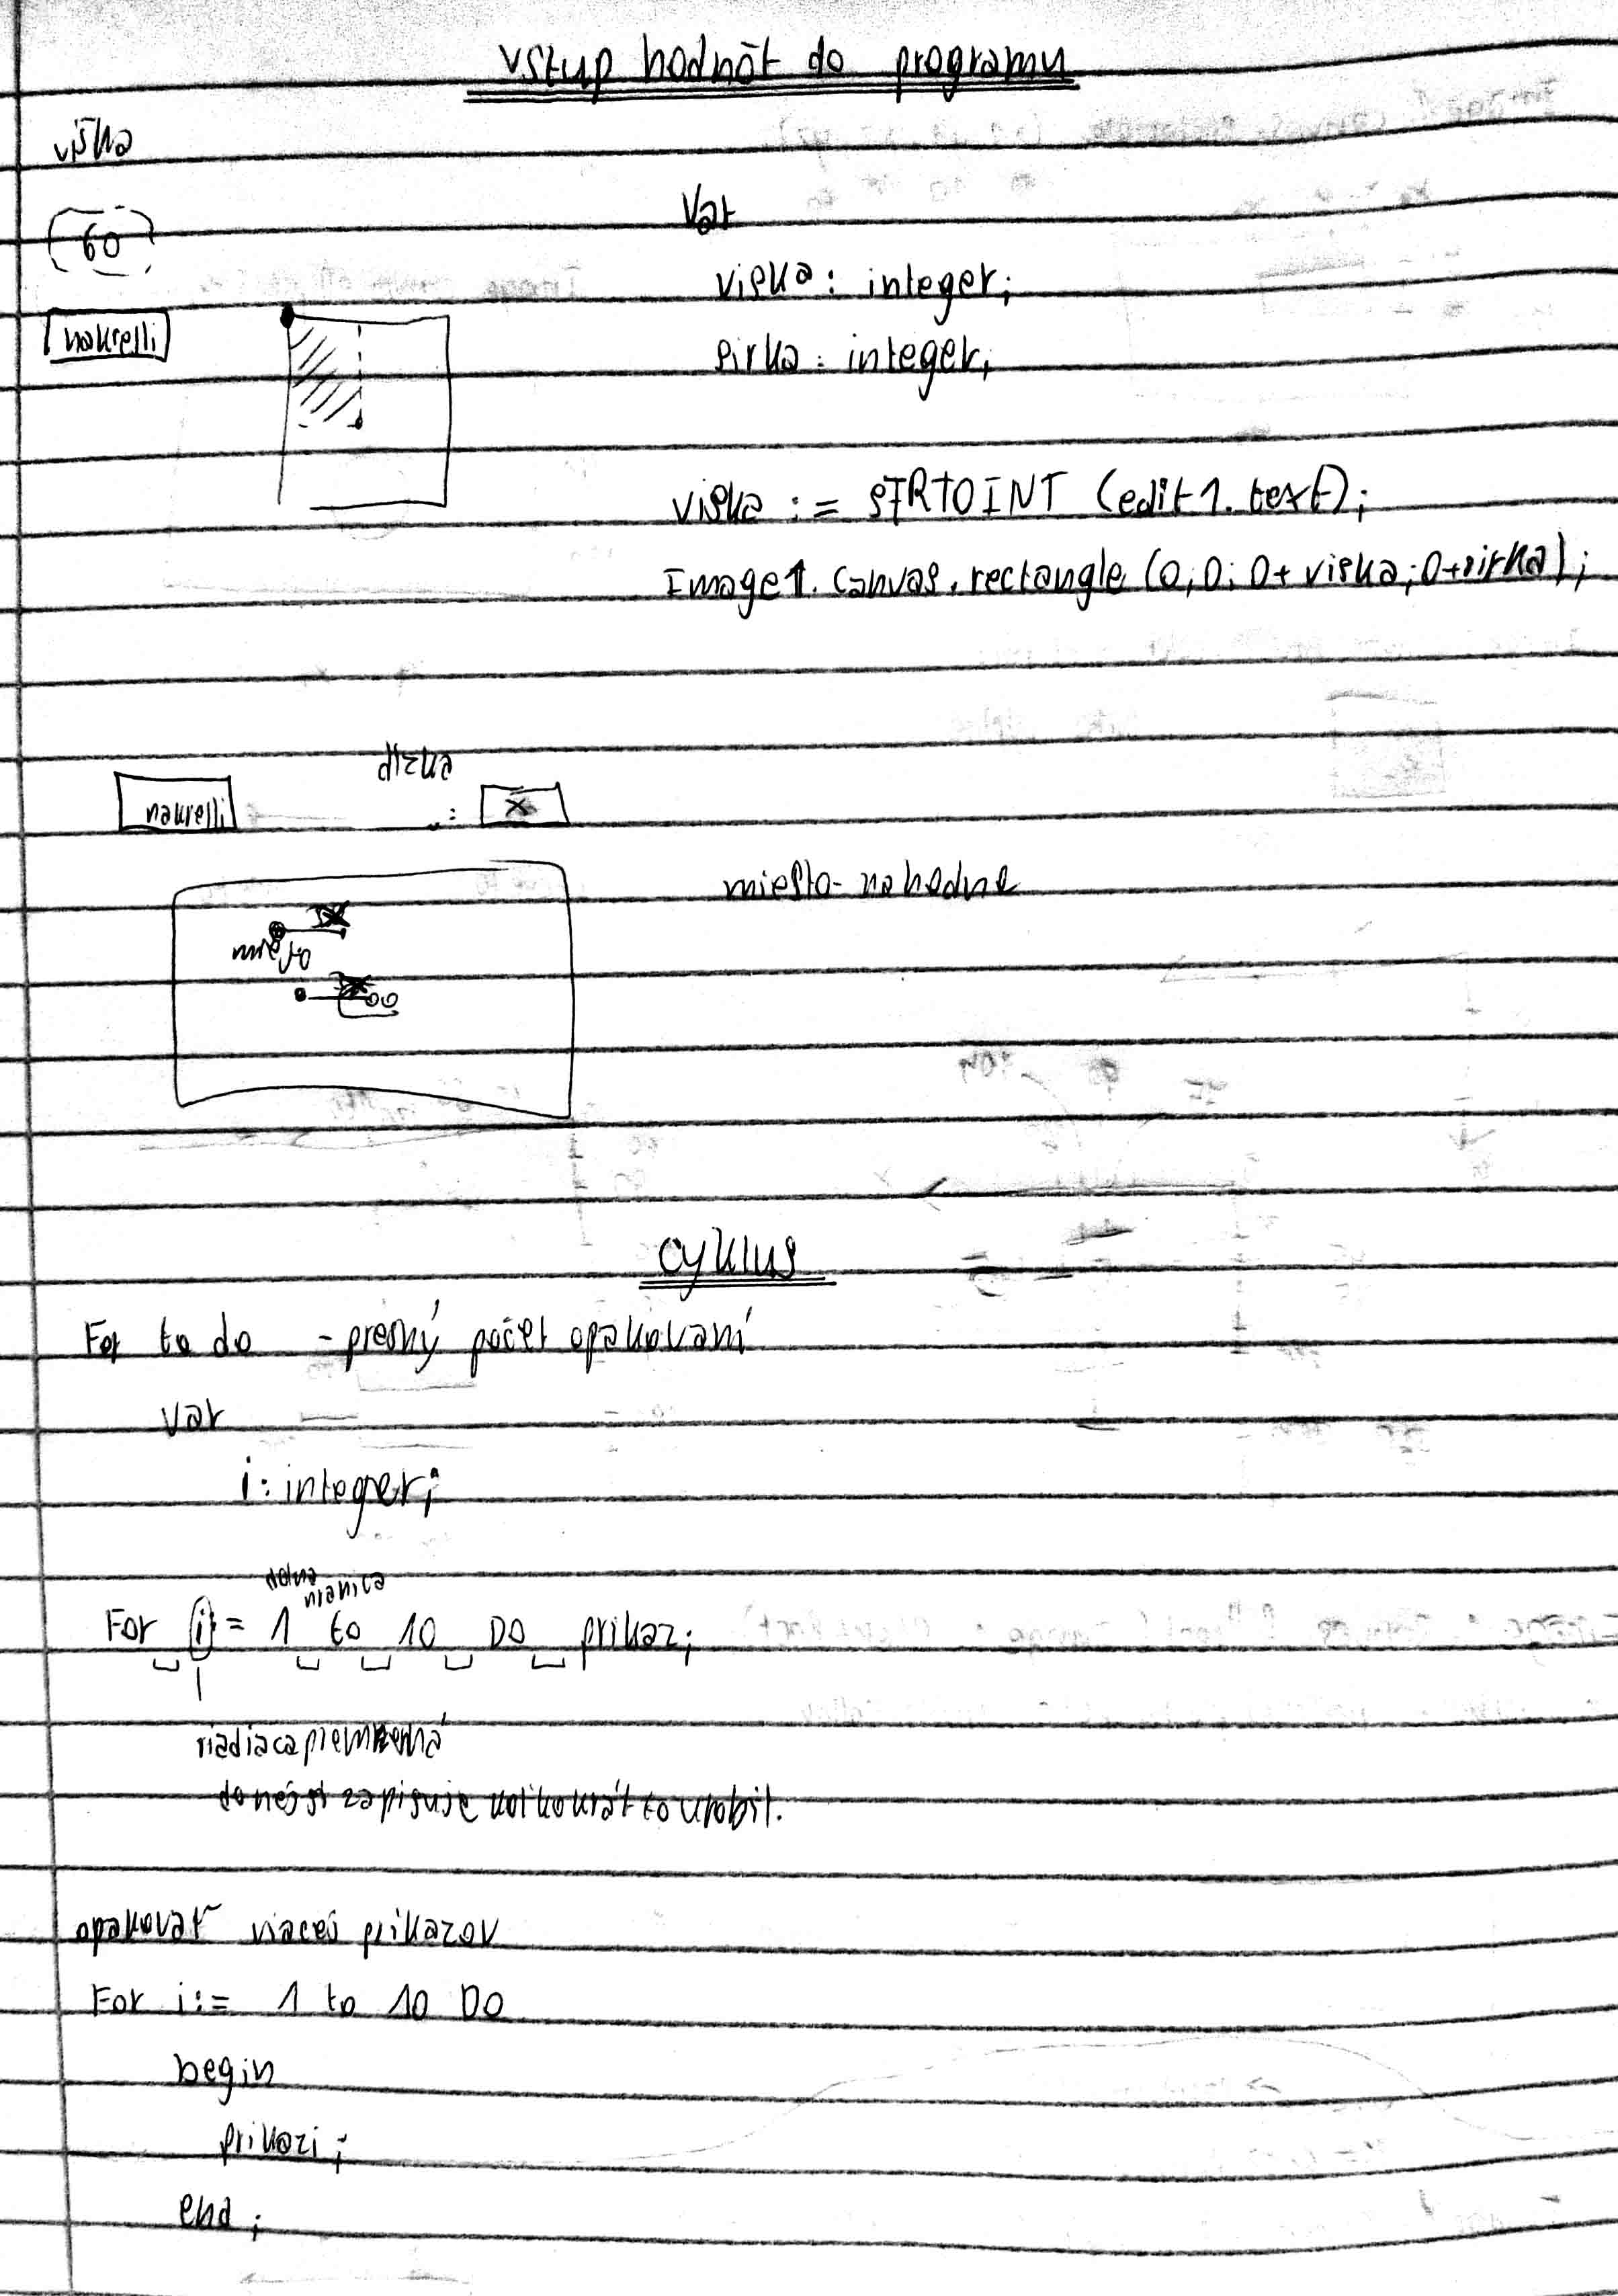 Vstup hodnôt do programu
viška
60
nakresli
Var
viska: integer;
sirka: integer;
viska := STRTOINT (edit1.text);
Image1.canvas.rectangle (0;0;0+viska;0+sirka);
dlzka
nakresli : x
miesto-nahodne
miesto
Cyklus
For to do - presný počet opakovaní
var
i: integer;
dolna hranica
For i:= 1 to 10 DO prikaz;
riadiaca premenná
do nej si zapisuje kolkokrát to urobil.
opakovať viacej prikazov
For i:= 1 to 10 DO
begin
prikazi;
end;